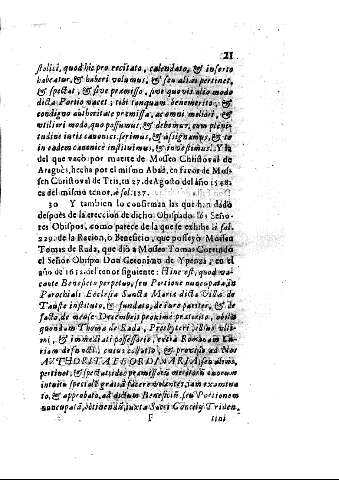 21
stolici, quod hic pro recitato, calendato, & inserto
habeatur, & haberi volumus, & seu alias pertinet,
& spectat, & sive præmisso, sive quovis alio modo
dicta Portio vacet; tibi tanquam benemerito, &
condigno authoritate præmissa, ac omni meliori, &
utiliori modo, quo possumus, & debemus, cum pleni-
tudine iuris canonici, ferimus, & assignamus, & te
in eadem canonicè instituimus, & investimus. Y la
del que vacò por muerte de Mossen Christoval de
Araguès, hecha por el mismo Abad, en favor de Mos-
sen Christoval de Tris, en 27. de Agosto del año 1548.
es del mismo tenor, à fol. 157.
30 Y tambien lo confirman las que han dado
despues de la ereccion de dicho Obispado los Seño-
res Obispos, como parece de la que se exhibe à fol.
229. de la Racion, ò Beneficio, que posseyò Mossen
Tomas de Rada, que diò à Mossen Tomas Cortendo
el Señor Obispo Don Geronimo de Ypenza; en el
año de 1612. del tenor siguiente: Hinc est, quod va-
cante Beneficio perpetuo, seu Portione nuncupata, in
Parochiali Ecclesia Sanctæ Mariæ dictæ Villæ de
Tauste instituto, & fundato, de iure pariter, & de
facto, de mense Decembris proximè præterito, obitu
quondam Thomæ de Rada, Presbyteri, illius ulti-
mi, & immediati possessoris, extra Romanam Cu-
riam defuncti, cuius collatio, & provisio ad Nos
AUTHORITATE ORDINARIA, seu aliàs,
pertinet, & spectat; vobis præmissorum meritorum tuorum
intuitu specialè gratiã facere volentes, tam examina-
to, & approbato, ad dictum Beneficiũ, seu Portionem
nuncupatã, obtinendũ, iuxta Sacri Concilij Triden-
F tini